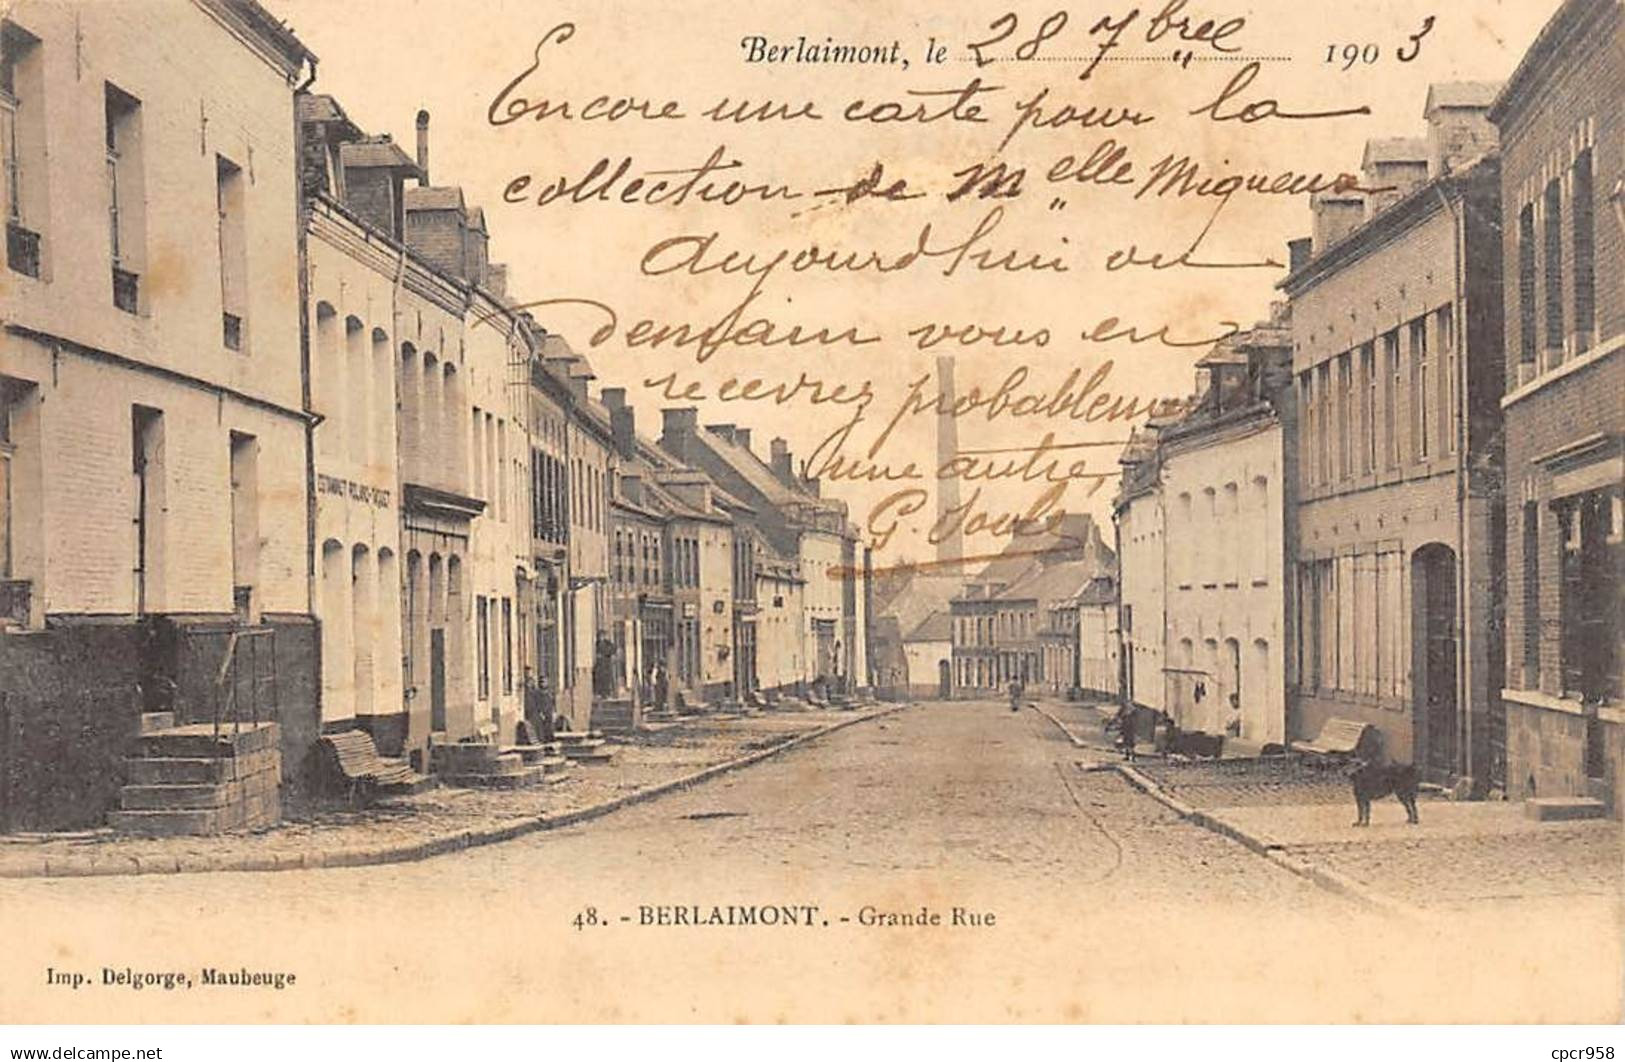 Berlaimont, le 28 7bre 1903
Encore une carte pour la
collection de Melle Miqueux
Aujourd'hui ou
demain vous en
recevrez probablement
une autre,
ESTAMINET
48. - BERLAIMONT. - Grande Rue
Imp. Delgorge, Maubeuge
cpcr958